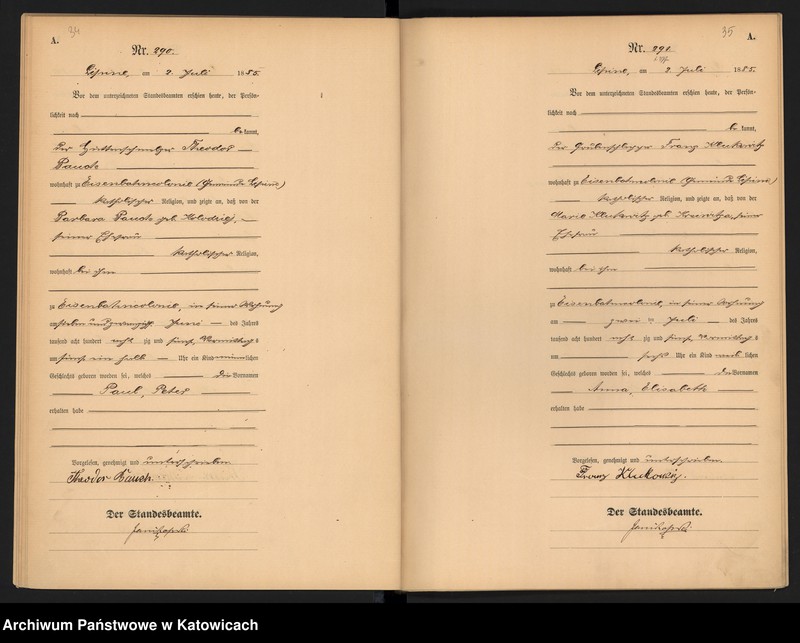 34
A.
Nr. 290.
Lipine, am 2 Juli 1885.
Vor dem unterzeichneten Standesbeamten erschien heute, der Persön-
lichkeit nach
be kannt,
Der Hüttenschmelzer Theodor
wohnhaft zu Eisenbahncolonie (Gemeinde Lipine)
katholischer Religion, und zeigte an, daß von der
Barbara geb.
seiner Ehefrau
katholischer Religion,
wohnhaft bei ihm
zu Eisenbahncolonie, in seiner Wohnung
am Juni des Jahres
tausend acht hundert acht zig und fünf, Vormittags
um fünf ein halb Uhr ein Kind männlichen
Geschlechts geboren worden sei, welches die Vornamen
Paul, Peter
erhalten habe
Vorgelesen, genehmigt und unterschrieben
Theodor
Der Standesbeamte.
35
A.
Nr. 291.
Lipine, am 2 Juli 1885.
Vor dem unterzeichneten Standesbeamten erschien heute, der Persön-
lichkeit nach
be kannt,
Der Grubenschlepper Franz
wohnhaft zu Eisenbahncolonie (Gemeinde Lipine)
katholischer Religion, und zeigte an, daß von der
Marie geb. seiner
Ehefrau
katholischer Religion,
wohnhaft bei ihm
zu Eisenbahncolonie, in seiner Wohnung
am zwei Juli des Jahres
tausend acht hundert acht zig und fünf, Vormittags
um sechs Uhr ein Kind weib lichen
Geschlechts geboren worden sei, welches die Vornamen
Anna, Elisabeth
erhalten habe
Vorgelesen, genehmigt und unterschrieben
Franz
Der Standesbeamte.
Archiwum Państwowe w Katowicach